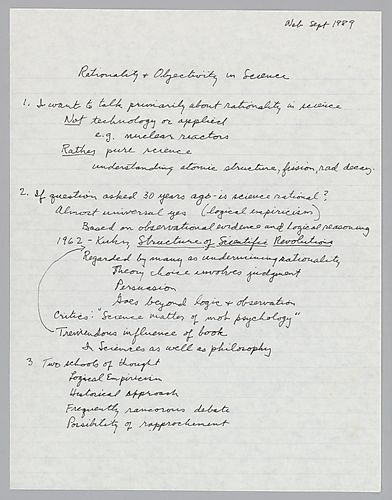 Web Sept 1989
Rationality & Objectivity in Science
1. I want to talk primarily about rationality in science
Not technology or applied
e.g. nuclear reactors
Rather pure science
understanding atomic structure, fission, rad decay.
2. If question asked 30 years ago - is science rational?
Almost universal yes (logical empiricism)
Based on observational evidence and logical reasoning
1962 - Kuhn, Structure of Scientific Revolutions
Regarded by many as undermining rationality
Theory choice involves judgment
Persuasion
Goes beyond logic & observation
Critics: "Science matter of mob psychology"
Tremendous influence of book
In Sciences as well as philosophy
3. Two schools of thought
Logical Empiricism
Historical Approach
Frequently rancorous debate
Possibility of rapprochement